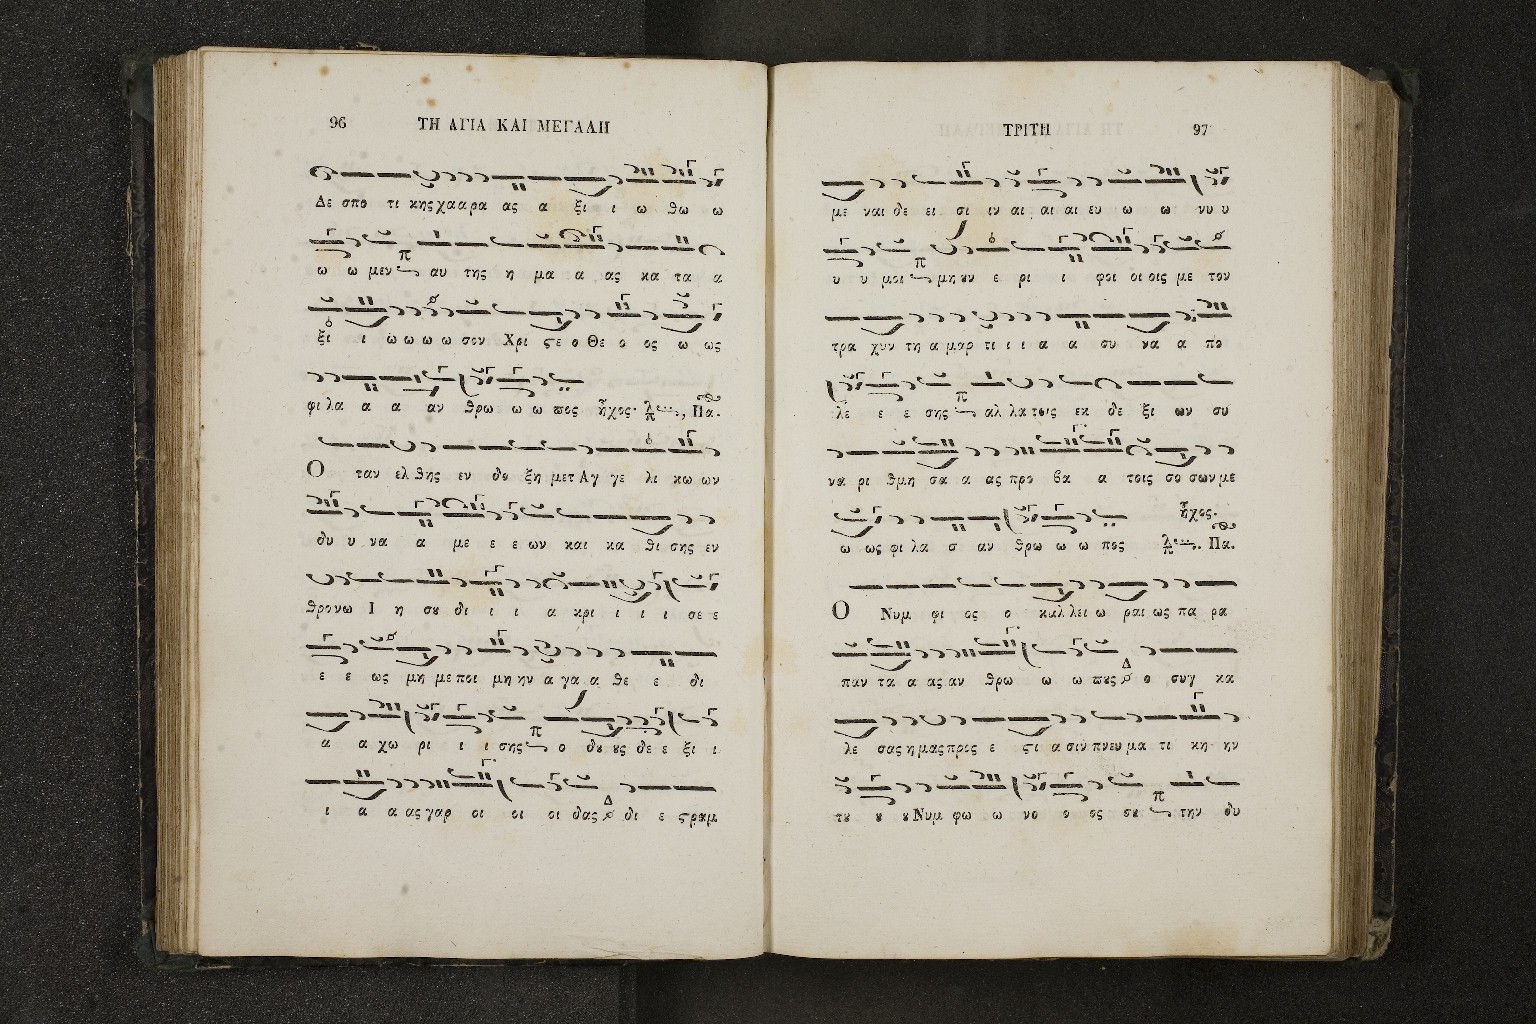 96 ΤΗ ΑΓΙΑ ΚΑΙ ΜΕΓΑΛΗ
Δε σπο τι κης χα α ρα ας α ξι ι ω θω ω
ω ω μεν αυ της η μα α ας κα τα α
ξι ι ω ω ω ω σον Χρι ϛε ο Θε ο ος ω ως
φι λα α α αν θρω ω ω πος ἦχος. λ π , Πα.
Ο ταν ελ θης εν δο ξη μετ Αγ γε λι κω ων
δυ υ να α με ε ε ων και κα θι σης εν
θρονω Ι η σου δι ι ι α κρι ι ι ι σε ε
ε ε ως μη με ποι μη ην α γα α θε ε δι
α α χω ρι ι ι σης π ο δου ους δε ε ξι ι
ι α α ας γαρ οι οι οι δας Δ δι ε ϛραμ
ΤΡΙΤΗ 97
με ναι δε ει σι ιν αι αι αι ευ ω ω νυ υ
υ υ μοι π μη ουν ε ρι ι φοι οι οις με τον
τρα χυν τη α μαρ τι ι ι α α συ να α πο
λε ε ε σης π αλ λα τοις εκ δε ξι ων συ
να ρι θμη σα α ας προ βα α τοις σο σων με
ἦχος.
ω ως φι λα α αν θρω ω ω πος λ π . Πα.
Ο Νυμ φι ος ο καλ λει ω ραι ως πα ρα
παν τα α ας αν θρω ω ω πους Δ ο συγ κα
λε σας η μας προς ε ϛι α σιν πνευ μα τι κη ην
του ου ου Νυμ φω ω νο ο ος σου π την δυ